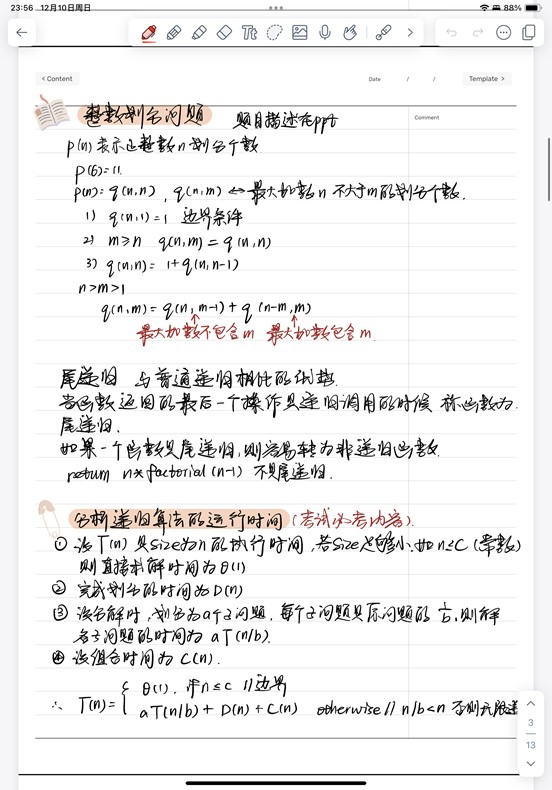 23:56 12月10日周日
88%
Tt
< Content
Date / /
Template >
Comment
整数划分问题 题目描述在ppt
p(n)表示正整数n划分个数
p(6)=11.
p(n)=q(n,n), q(n,m) ⇔ 最大加数n不大于m的划分个数.
1) q(n,1)=1 边界条件
2) m≥n q(n,m)=q(n,n)
3) q(n,n)=1+q(n,n-1)
n>m>1
q(n,m)=q(n,m-1)+q(n-m,m)
最大加数不包含m 最大加数包含m
尾递归 与普通递归相比的优势
当函数返回的最后一个操作是递归调用的时候 称函数为
尾递归.
如果一个函数是尾递归,则容易转为非递归函数.
return n×factorial(n-1) 不是尾递归.
分析递归算法的运行时间 (考试必考内容).
① 设T(n)是size为n的执行时间,若size足够小,如n≤C (常数)
则直接求解时间为θ(1)
② 完成划分的时间为D(n)
③ 设分解时,划分为a个子问题,每个子问题是原问题的1/b,则解
各子问题的时间为 aT(n/b).
④ 设组合时间为C(n).
∴ T(n)= { θ(1), if n≤c //边界
aT(n/b)+D(n)+C(n) otherwise // n/b<n 否则无限递
3
13